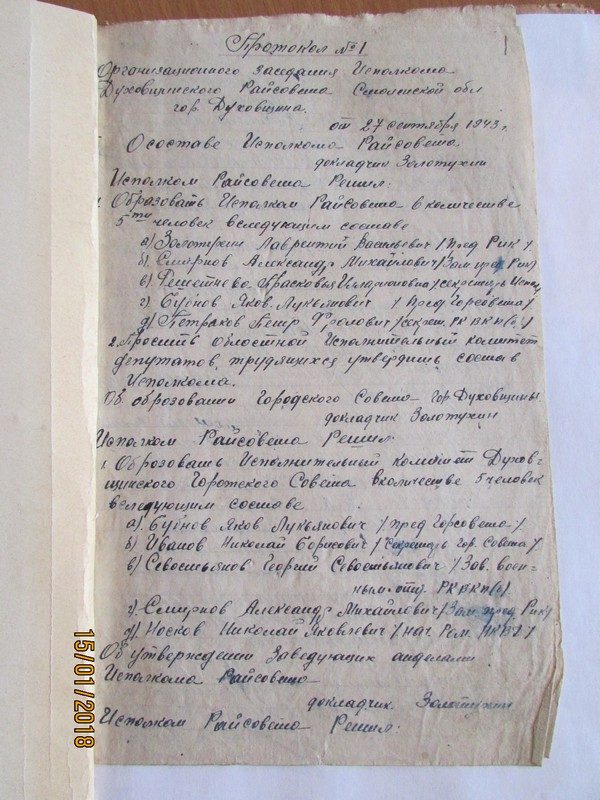 Протокол №1
1
Организационного заседания Исполкома
Духовщинского Райсовета Смоленской обл
гор. Духовщина.
от 27 сентября 1943 г.
О составе Исполкома Райсовета
докладчик Золотухин
Исполком Райсовета Решил:
1. Образовать Исполком Райсовета в количестве
5ти человек вследующем составе
а) Золотухин Лаврентий Васильевич /Пред Рик/
б) Смирнов Александр Михайлович /Зам. пред. Рик/
в) Решетнево Прасковья /секретарь Испол
г) Бубнов Яков Лукьянович /Пред. Горсовета/
д) Петраков Петр Фролович /секрет. РК ВКП(б)/
2. Просить областной Исполнительный комитет
депутатов трудящихся утвердить состав
Исполкома.
Об оброзовании Городского Совета гор. Духовщины
докладчик Золотухин
Исполком Райсовета Решил:
1. Оброзовать Исполнительный комитет Духов-
щинского Горотского Совета вколичестве 5 человек
вследующим составе
а). Бубнов Яков Лукьянович /пред Горсовета/
б) Иванов Николай Борисович /Секретарь Гор. Совета/
в) Севостьянов Георгий Севостьянович /Зав. воен-
ным отд. РКВКП(б)
г). Смирнов Александр Михайлович /Зам. пред Рик/
д). Носков Николай Яковлевич /нач. Ром. НКВД/
Об утверждении Заведующих отделами
Исполкома Райсовета
докладчик Золотухин
Исполком Райсовета Решил:
15/01/2018